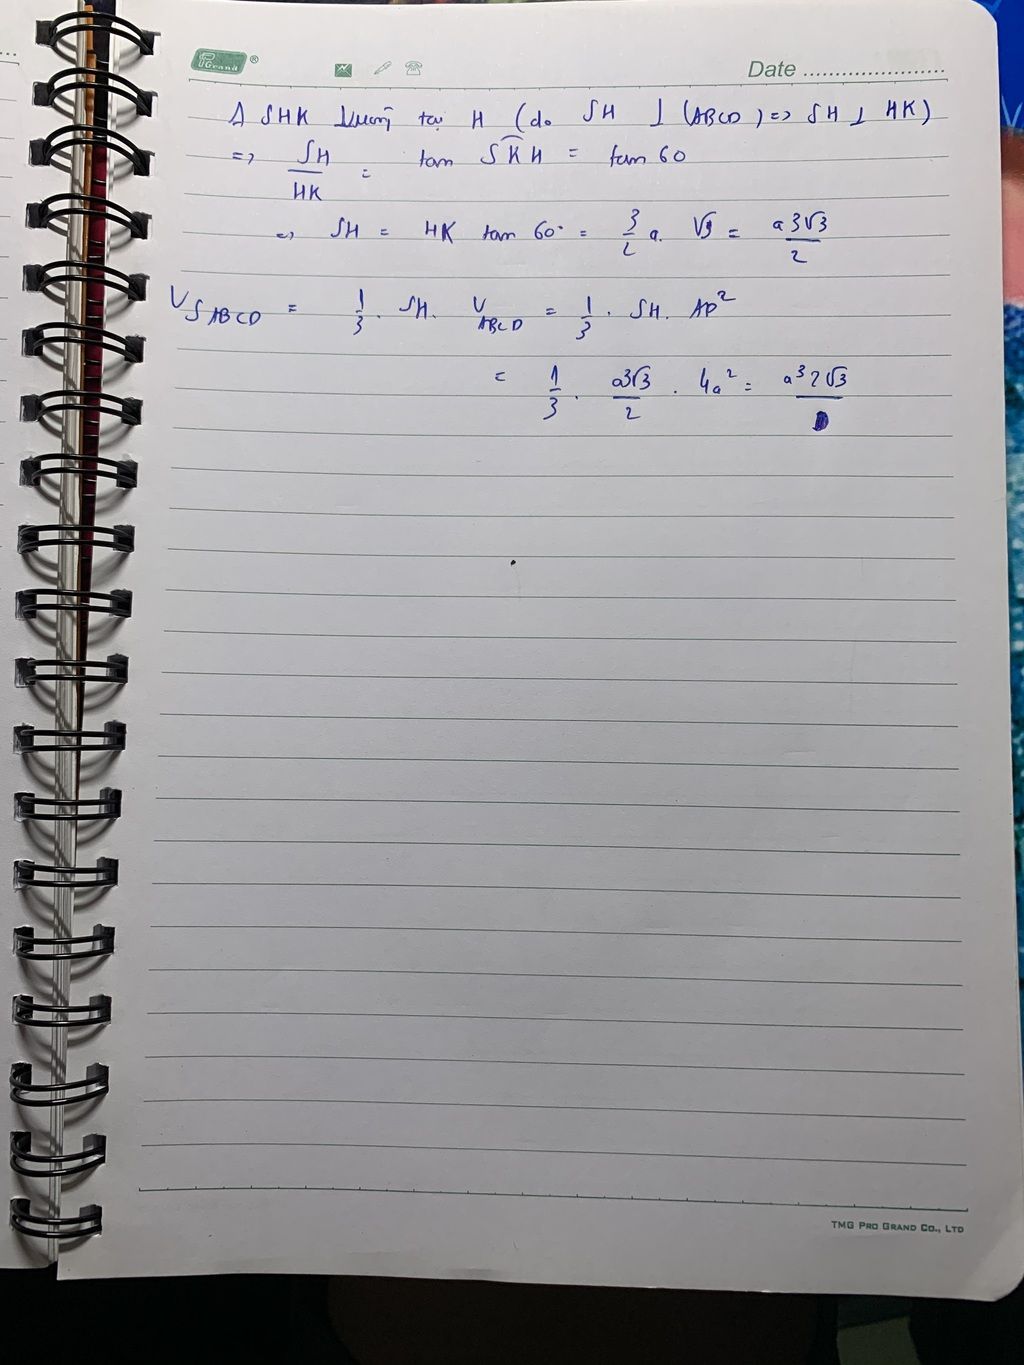 PGrand ®
Date ......................
Δ SHK vuông tại H (do SH ⊥ (ABCD) => SH ⊥ HK)
=> SH/HK = tan SKH = tan 60
=> SH = HK tan 60° = 3/2 a. √3 = a3√3/2
V SABCD = 1/3 . SH. V ABCD = 1/3 . SH. AD²
= 1/3 . a3√3/2 . 4a² = a³2√3
TMG PRO GRAND CO., LTD